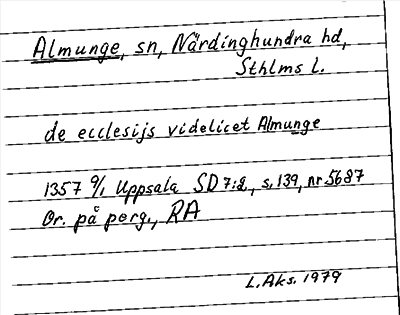 Almunge, sn, Närdinghundra hd,
Sthlms l.
de ecclesijs videlicet Almunge
1357 9/1 Uppsala SD 7:2, s. 139, nr 5687
Or. på perg., RA
L. Aks. 1979